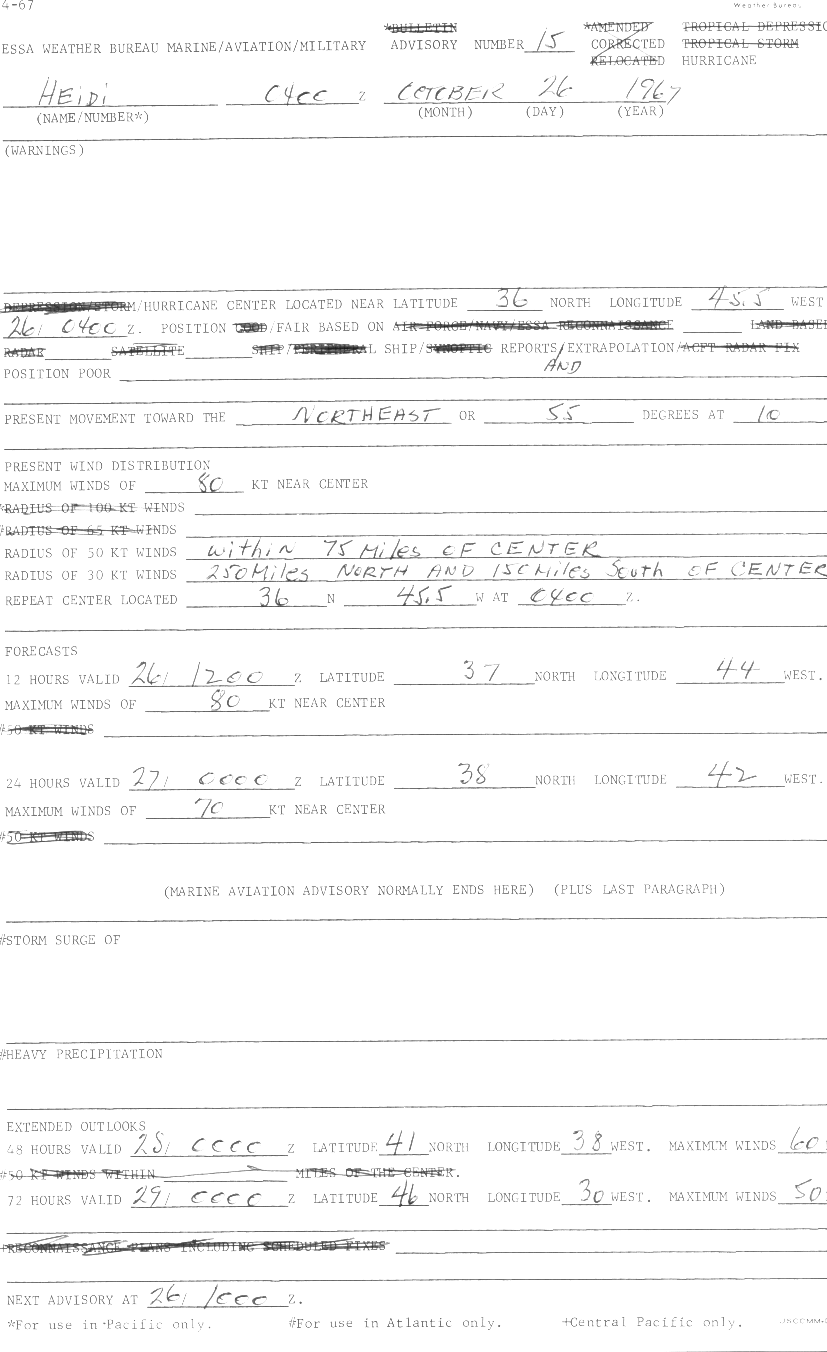 4-67
Weather Bureau
*BULLETIN *AMENDED TROPICAL DEPRESSIO
ESSA WEATHER BUREAU MARINE/AVIATION/MILITARY ADVISORY NUMBER 15 CORRECTED TROPICAL STORM
RELOCATED HURRICANE
HEIDI 0400 Z OCTOBER 26 1967
(NAME/NUMBER*) (MONTH) (DAY) (YEAR)
(WARNINGS)
DEPRESSION/STORM/HURRICANE CENTER LOCATED NEAR LATITUDE 36 NORTH LONGITUDE 45.5 WEST
26/ 0400 Z. POSITION GOOD/FAIR BASED ON AIR FORCE/NAVY/ESSA RECONNAISSANCE LAND BASED
RADAR SATELLITE SHIP/PERIPHERAL SHIP/SYNOPTIC REPORTS/EXTRAPOLATION/ACFT RADAR FIX
AND
POSITION POOR
PRESENT MOVEMENT TOWARD THE NORTHEAST OR 55 DEGREES AT 10
PRESENT WIND DISTRIBUTION
MAXIMUM WINDS OF 80 KT NEAR CENTER
*RADIUS OF 100 KT WINDS
#RADIUS OF 65 KT WINDS
RADIUS OF 50 KT WINDS within 75 Miles OF CENTER
RADIUS OF 30 KT WINDS 250 Miles NORTH AND 150 Miles South OF CENTER
REPEAT CENTER LOCATED 36 N 45.5 W AT 0400 Z.
FORECASTS
12 HOURS VALID 26/ 1200 Z LATITUDE 37 NORTH LONGITUDE 44 WEST.
MAXIMUM WINDS OF 80 KT NEAR CENTER
#50 KT WINDS
24 HOURS VALID 27/ 0000 Z LATITUDE 38 NORTH LONGITUDE 42 WEST.
MAXIMUM WINDS OF 70 KT NEAR CENTER
#50 KT WINDS
(MARINE AVIATION ADVISORY NORMALLY ENDS HERE) (PLUS LAST PARAGRAPH)
#STORM SURGE OF
#HEAVY PRECIPITATION
EXTENDED OUTLOOKS
48 HOURS VALID 28/ 0000 Z LATITUDE 41 NORTH LONGITUDE 38 WEST. MAXIMUM WINDS 60
#50 KT WINDS WITHIN MILES OF THE CENTER.
72 HOURS VALID 29/ 0000 Z LATITUDE 46 NORTH LONGITUDE 30 WEST. MAXIMUM WINDS 50
+RECONNAISSANCE PLANS INCLUDING SCHEDULED FIXES
NEXT ADVISORY AT 26/ 1000 Z.
*For use in Pacific only. #For use in Atlantic only. +Central Pacific only. USCOMM-